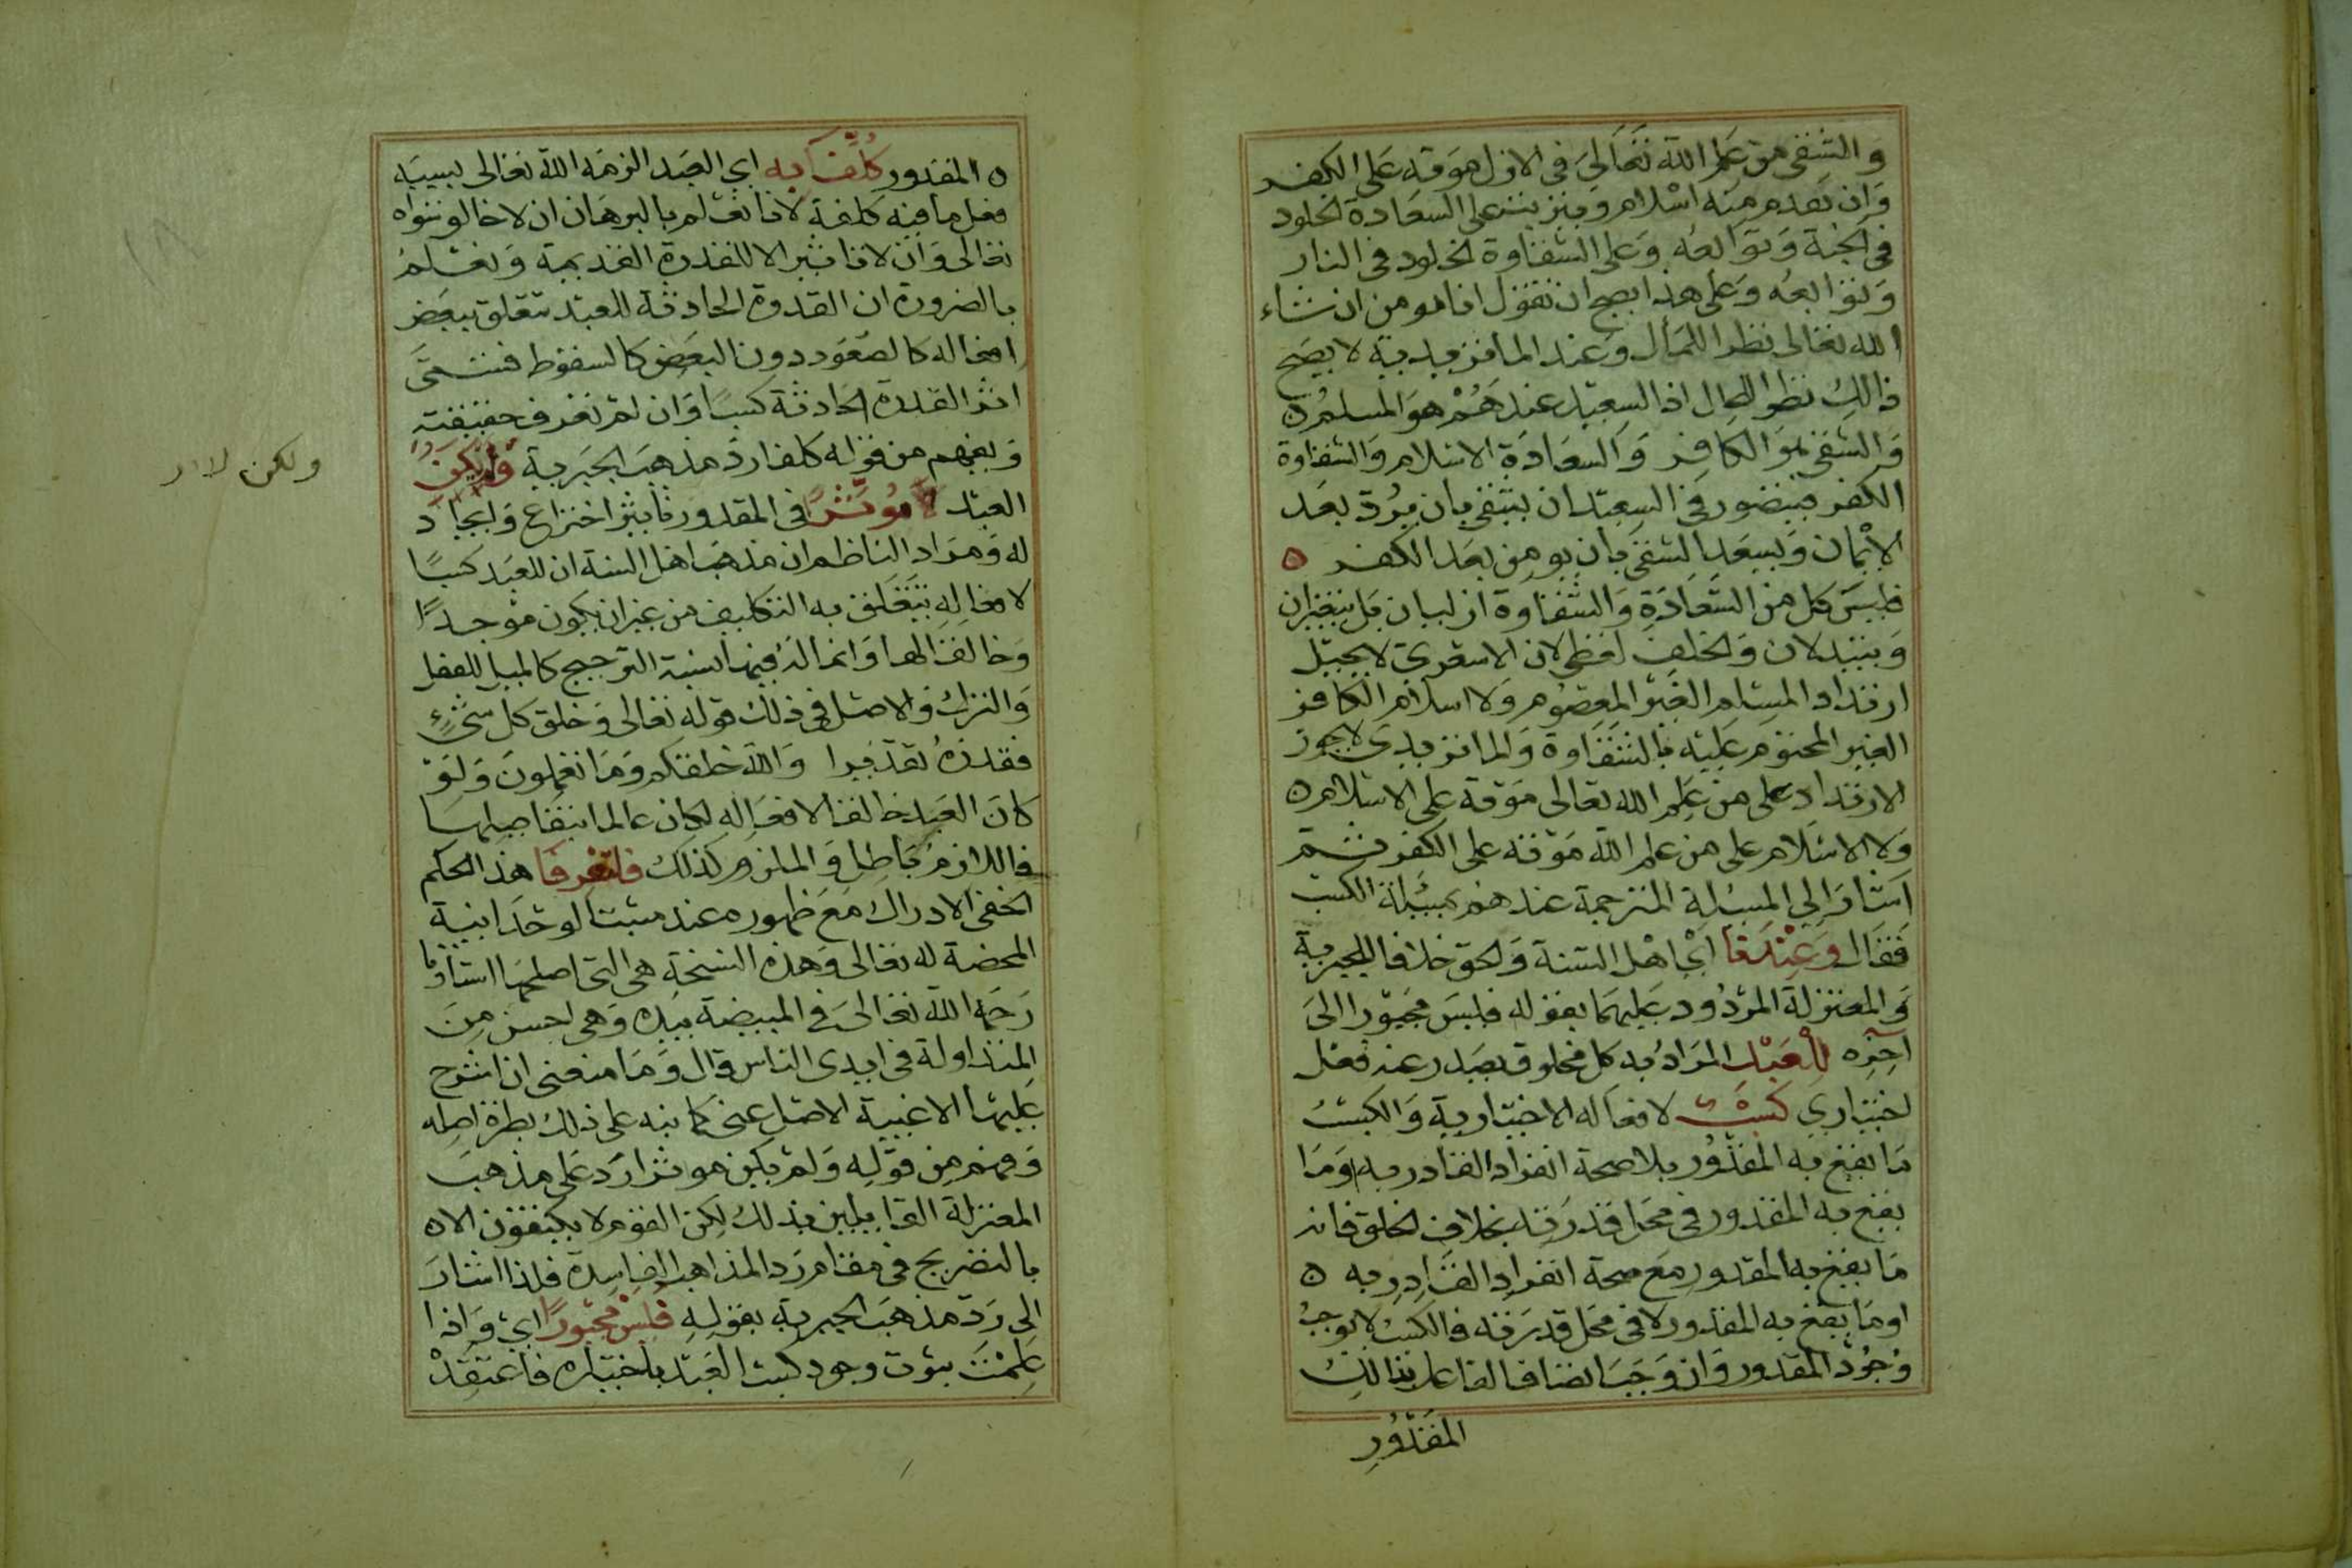 والشقي من علم الله تعالى في الازل موته على الكفر
وان تقدم منه اسلام ويترتب على السعادة الخلود
في الجنة وتوابعه وعلى الشقاوة الخلود في النار
وتوابعه وعلى هذا يصح ان تقول انا مومن ان شاء
الله تعالى نظرا للمآل وعند الماتريدية لا يصح
ذالك نظرا للحال اذ السعيد عندهم هو المسلم ه
والشقي هو الكافر والسعادة الاسلام والشقاوة
الكفر فيتصور في السعيد ان يشقى بان يرتد بعد
الايمان ويسعد الشقي بان يومن بعد الكفر ه
فليس كل من السعادة والشقاوة ازليان بل يتغيران
ويتبدلان والخلف لفظي لان الاشعري لا يحيل
ارتداد المسلم الغير المعصوم ولا اسلام الكافر
الغير المحتوم عليه بالشقاوة والماتريدي لا يجوز
الارتداد على من علم الله تعالى موته على الاسلام ه
ولا الاسلام على من علم الله موته على الكفر ثم
اشار الى المسئلة المترجمة عندهم بمسئلة الكسب
فقال وعندنا اي اهل السنة والحق خلافا للجبرية
والمعتزلة المردود عليهما بقوله فليس مجبورا الى
آخره للعبد المراد به كل مخلوق يصدر عنه فعل
اختياري كسب لافعاله الاختيارية والكسب
ما يقع به المقدور بلا صحة انفراد القادر به او ما
يقع به المقدور في محل قدرته بخلاف الخلق فانه
ما يقع به المقدور مع صحة انفراد القادر به ه
او ما يقع به المقدور لا في محل قدرته فالكسب لا يوجب
وجود المقدور وان وجب اتصاف الفاعل بذالك
المقدور
ه المقدور كلف به اي العبد الزمه الله تعالى بسببه
فعل ما فيه كلفة لانا نعلم بالبرهان ان لا خالق سواه
تعالى وان لا تاثير الا للقدرة القديمة ونعلم
بالضرورة ان القدرة الحادثة للعبد تتعلق ببعض
افعاله كالصعود دون البعض كالسقوط فتسمى
اثر القدرة الحادثة كسبا وان لم تعرف حقيقته
ويفهم من قوله كلفا رد مذهب الجبرية ولم يكن
العبد مؤثرا في المقدور تاثير اختراع وايجاد
له ومراد الناظم ان مذهب اهل السنة ان للعبد كسبا
لافعاله يتعلق به التكليف من غير ان يكون موجدا
وخالقا لها وانما له فيها نسبة الترجيح كالميل للفعل
والترك والاصل في ذلك قوله تعالى وخلق كل شيء
فقدره تقديرا والله خلقكم وما تعملون ولو
كان العبد خالقا لافعاله لكان عالما بتفاصيلها
فاللازم باطل والملزوم كذلك فلتعرفا هذا الحكم
الخفي الادراك مع ظهوره عند مثبت الوحدانية
المحضة له تعالى وهذه النسخة هي التي اصلحها استاذنا
رحمه الله تعالى في المبيضة بيده وهي احسن من
المتداولة في ايدي الناس قال وما منعني ان اشرح
عليها الا غيبة الاصل عني كما نبه على ذلك بطرة اصله
وفهم من قوله ولم يكن موثرا رد على مذهب
المعتزلة القايلين بذلك لكن القوم لا يكتفون الا ه
بالتصريح في مقام رد المذاهب الفاسدة فلذا اشار
الى رد مذهب الجبرية بقوله فليس مجبورا اي واذا
علمت ثبوت وجود كسب العبد باختياره فاعتقد
ولكن